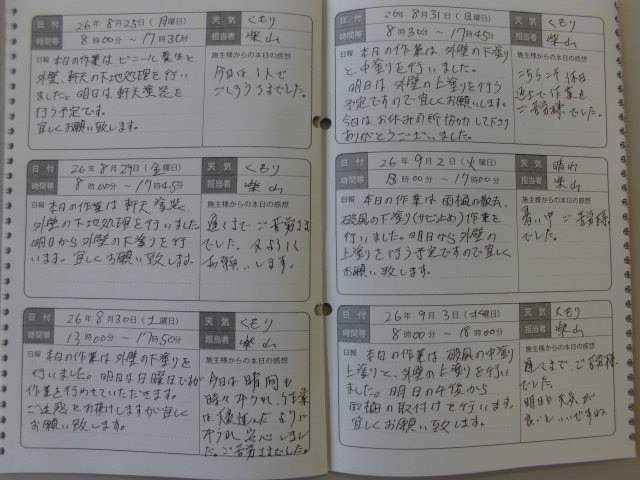 日付 26年8月25日(月曜日) 天気 くもり
時間帯 8時00分〜17時30分 担当者 柴山
日報 本日の作業はビニール養生と
外壁、軒天の下地処理を行い
ました。明日は軒天塗装を
行う予定です。
宜しくお願い致します。
施主様からの本日の感想
今日は1人で
ごくろうさまでした。
日付 26年8月29日(金曜日) 天気 くもり
時間帯 8時00分〜17時45分 担当者 柴山
日報 本日の作業は軒天塗装、
外壁の下地処理を行いました。
明日から外壁の下塗りを行
います。宜しくお願い致します。
施主様からの本日の感想
遅くまでご苦労さま
でした。又よろしく
お願いします。
日付 26年8月30日(土曜日) 天気 くもり
時間帯 13時00分〜17時50分 担当者 柴山
日報 本日の作業は、外壁の下塗りを
行いました。明日は日曜日ですが
作業を行わせていただきます。
ご迷惑をお掛けしますが宜しく
お願い致します。
施主様からの本日の感想
今日は晴間も
時々 作業
は
安心しまし
た。ご苦労さまでした。
日付 26年8月31日(日曜日) 天気 くもり
時間帯 8時30分〜17時45分 担当者 柴山
日報 本日の作業は、外壁の下塗り
と中塗りを行いました。
明日は、外壁の上塗りを行う
予定ですので宜しくお願いします。
今日は、お休みの所協力して下さり
ありがとうございました。
施主様からの本日の感想
こちらこそ、休日
返上で作業を
ご苦労様でした。
日付 26年9月2日(火曜日) 天気 晴れ
時間帯 13時00分〜17時00分 担当者 柴山
日報 本日の作業は、雨樋の撤去、
破風の下塗り(サビ止め)作業を
行いました。明日から外壁の
上塗りを行う予定ですので宜しく
お願い致します。
施主様からの本日の感想
暑い中ご苦労様
でした。
日付 26年9月3日(水曜日) 天気 くもり
時間帯 8時00分〜18時00分 担当者 柴山
日報 本日の作業は破風の中塗り
上塗りと、外壁の上塗りを行い
ました。明日の午後から
雨樋の取付けを行います。
宜しくお願い致します。
施主様からの本日の感想
遅くまで、ご苦労様
でした。
明日天気が
良いといいですね